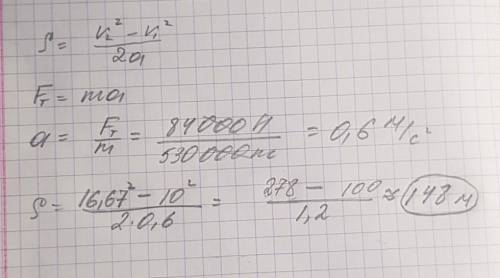 S = (v₂² − v₁²) / 2a
Fт = ma
a = Fт / m = 84000 Н / 530000 = 0,6 м/с²
S = (16,67² − 10²) / (2·0,6) = (278 − 100) / 1,2 ≈ 148 м